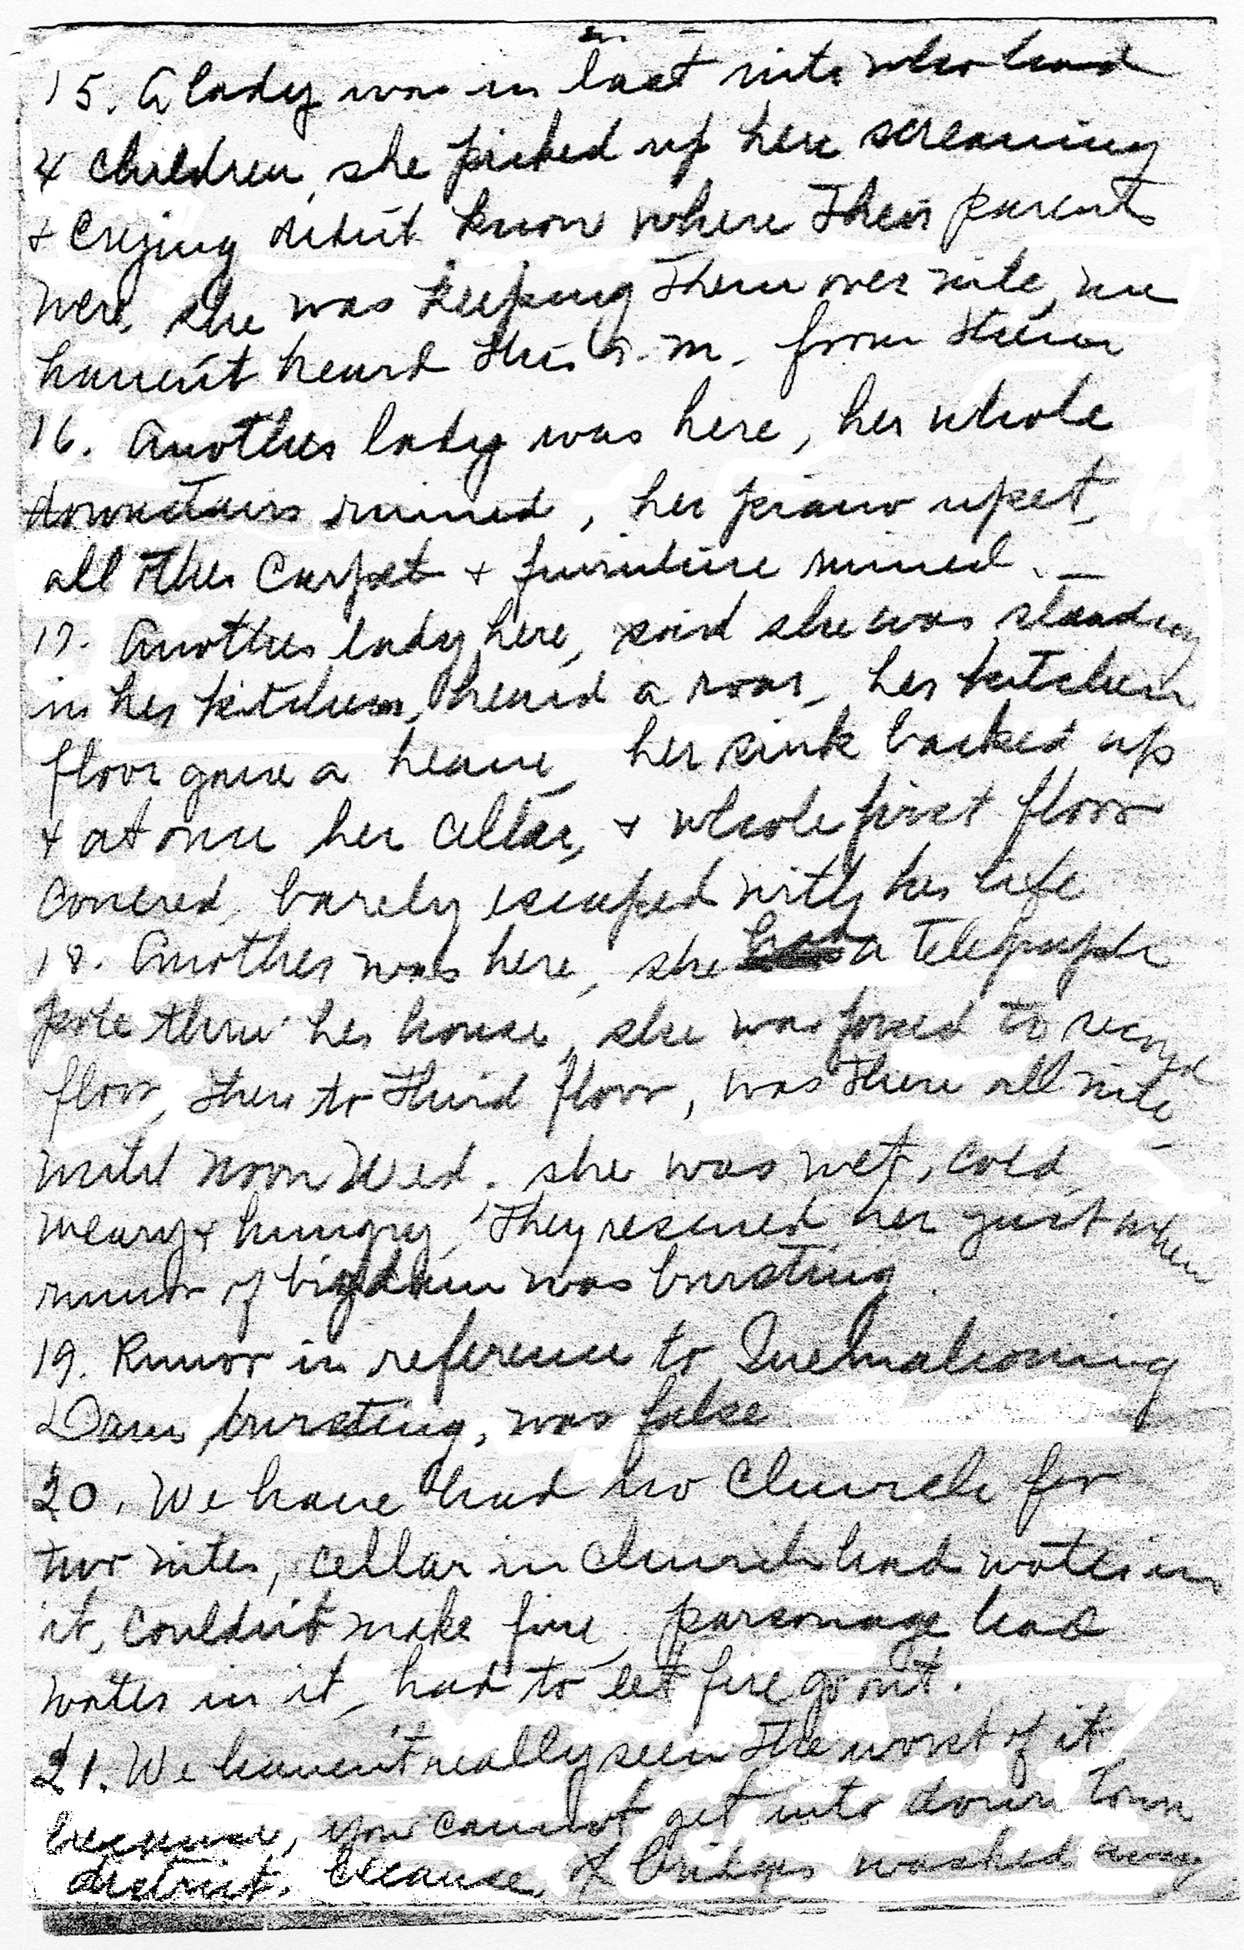 15. A lady was in last nite who had
4 children, she picked up here screaming
& crying didn't know where their parents
were, she was keeping them over nite, we
haven't heard this a.m. from them
16. Another lady was here, her whole
downstairs ruined, her piano upset,
all other carpet & furniture ruined. —
17. Another lady here, said she was standing
in her kitchen, heard a roar, her kitchen
floor gave a heave, her sink backed up
& at once her cellar, & whole first floor
covered, barely escaped with her life
18. Another was here, she had a telegraph
pole thru her house, she was forced to second
floor, then to third floor, was there all nite
until noon Wed. she was wet, cold,
weary & hungry, They rescued her just when
rumor of big dam was bursting
19. Rumor in reference to Quemahoning
Dam bursting, was false
20. We have had no church for
two nites, cellar in church had water in
it, couldn't make fire, parsonage had
water in it, had to let fire go out.
21. We haven't really seen the worst of it
because, you cannot get into down town
district. because, of bridges washed away